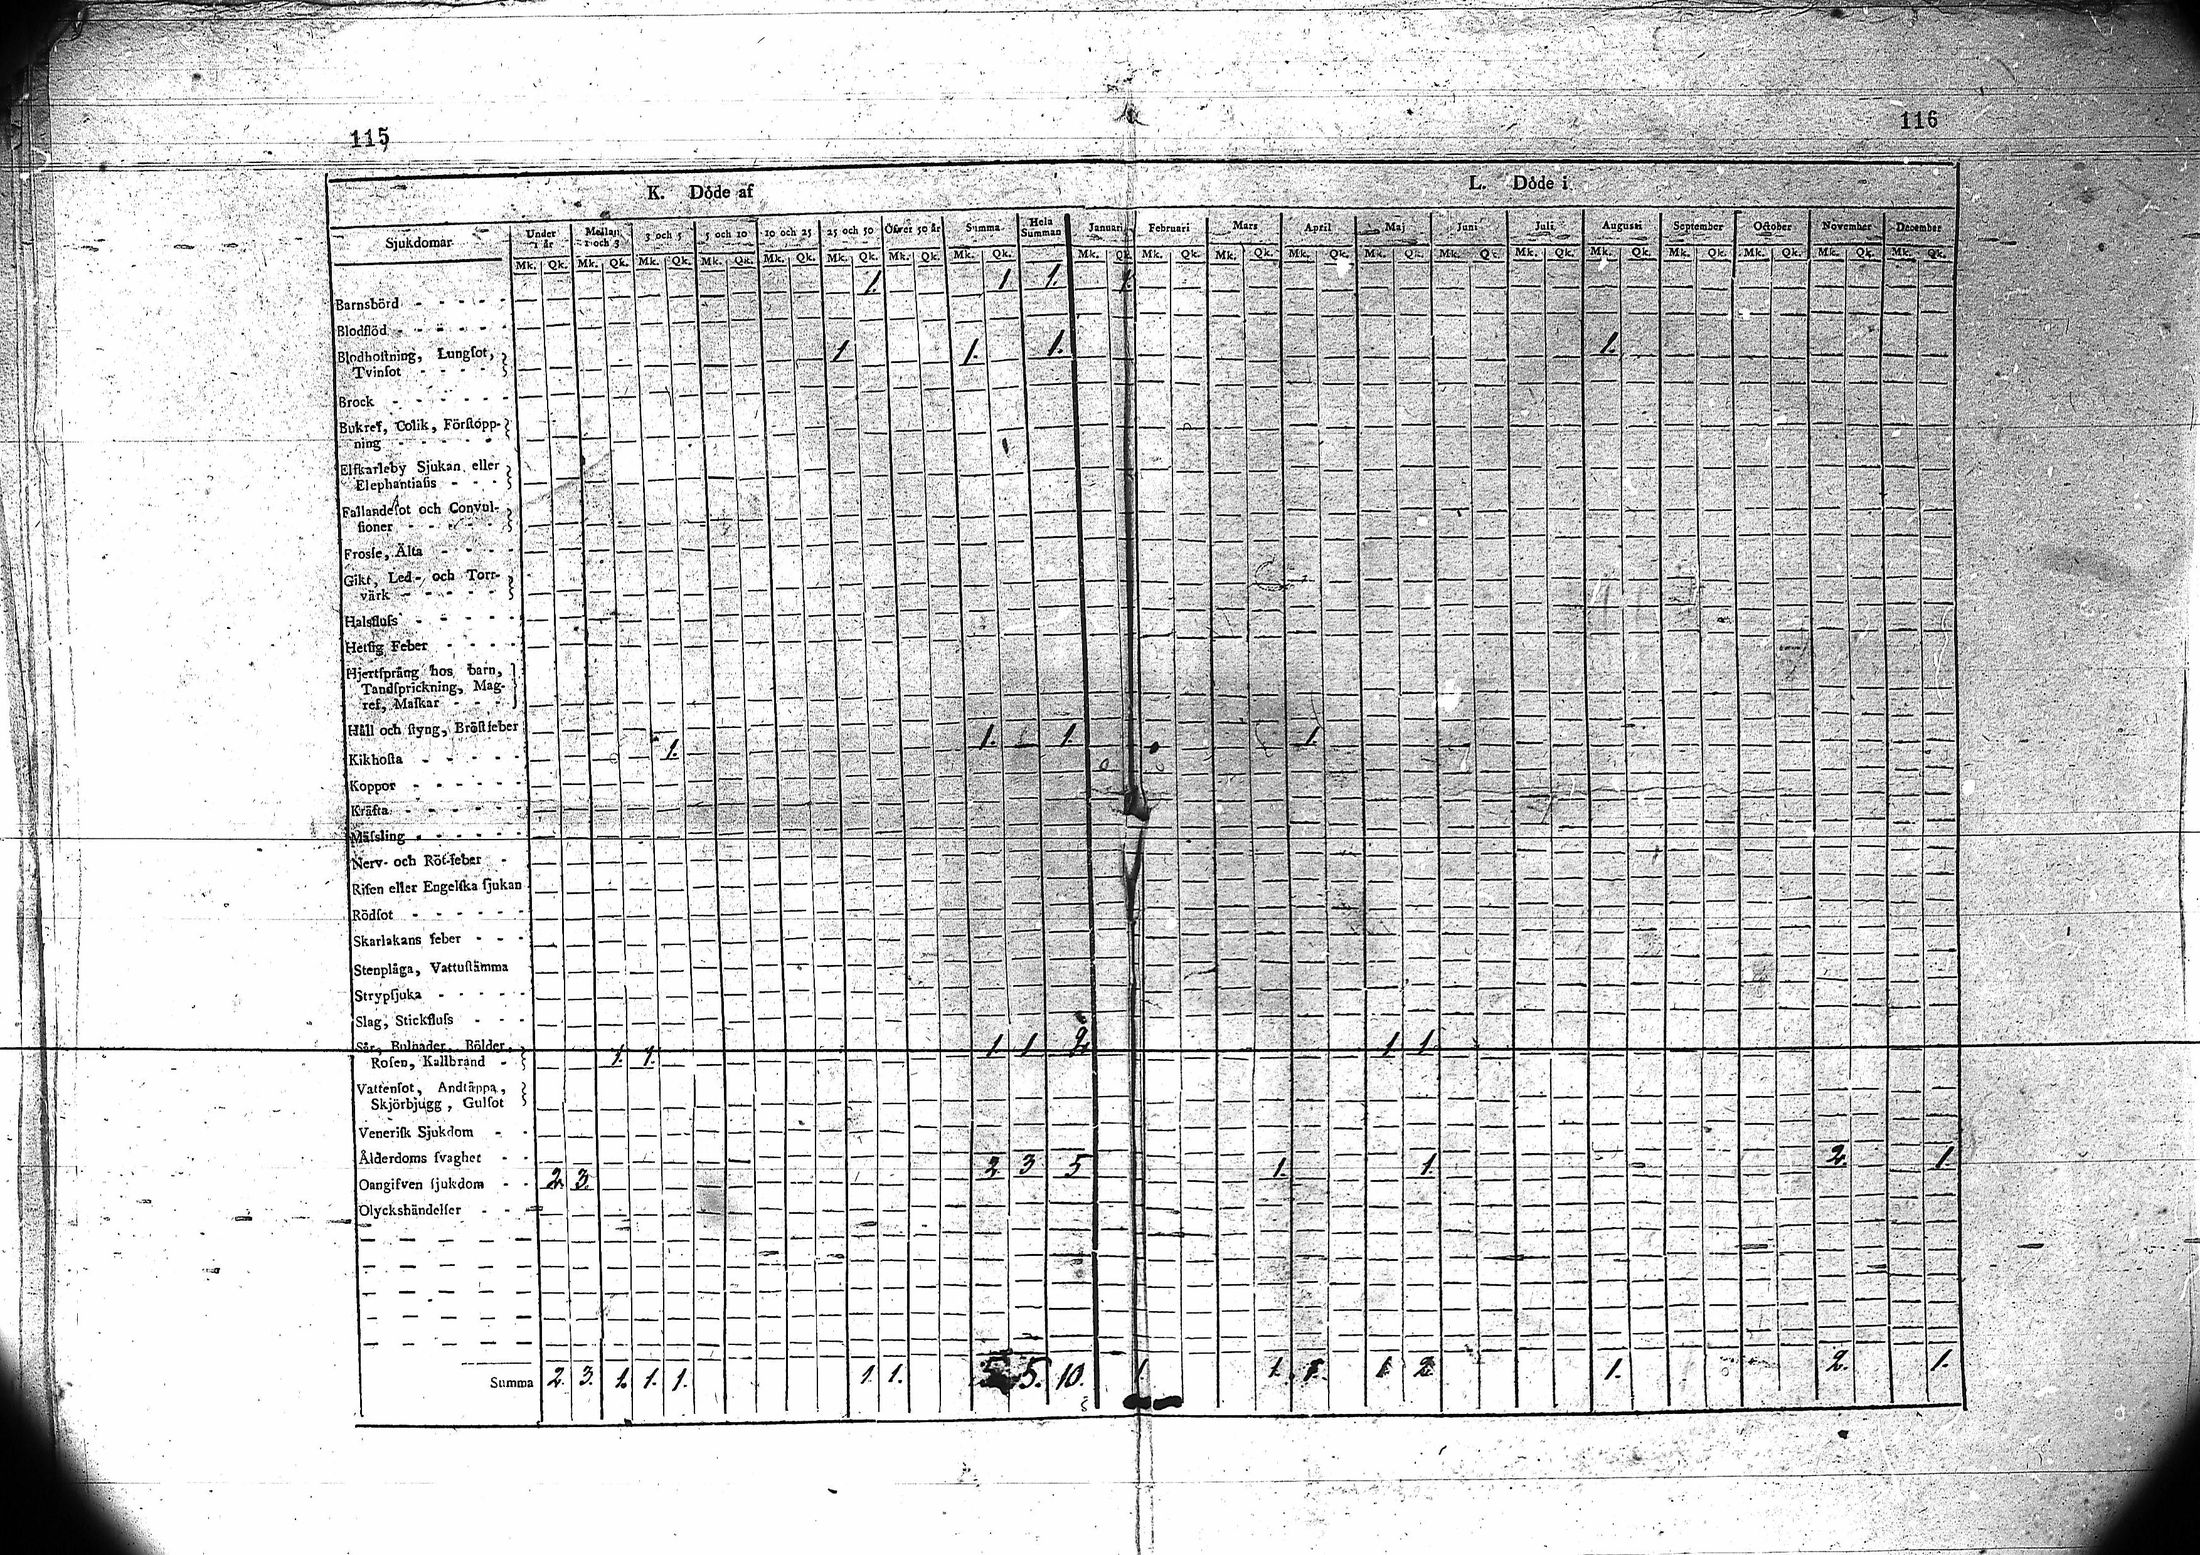 115
116
K. Döde af
L. Döde i
Sjukdomar
Under 1 år
Mellan 1 och 3
3 och 5
5 och 10
10 och 25
25 och 50
Öfver 50 år
Summa
Hela Summan
Januari
Februari
Mars
April
Maj
Juni
Juli
Augusti
September
October
November
December
Mk. Qk. Mk. Qk. Mk. Qk. Mk. Qk. Mk. Qk. Mk. Qk. Mk. Qk. Mk. Qk. Mk. Qk. Mk. Qk. Mk. Qk. Mk. Qk. Mk. Qk. Mk. Qk. Mk. Qk. Mk. Qk. Mk. Qk. Mk. Qk. Mk. Qk. Mk. Qk.
Barnsbörd - - - - - 1. 1 1. 1.
Blodflöd - - - - -
Blodhoſtning, Lungſot, 1 1. 1. 1.
Tvinſot - - - -
Brock - - - - - -
Bukref, Colik, Förſtopp-
ning - - - - -
Elfkarleby Sjukan eller
Elephantiaſis - - -
Fallandeſot och Convul-
ſioner - - - - -
Froſſe, Älta - - - -
Gikt, Led- och Torr-
värk - - - - -
Halsfluſs - - - - -
Hetſig Feber - - - -
Hjertſprång hos barn,
Tandſprickning, Mag-
ref, Maſkar - - -
Håll och ſtyng, Bröſtfeber
Kikhoſta - - - - - 1. 1. 1. 1.
Koppor - - - - -
Kräfta - - - - -
Mäſsling - - - - -
Nerv- och Röt-feber -
Riſen eller Engelſka ſjukan
Rödſot - - - - -
Skarlakans feber - - -
Stenplåga, Vattuſtämma
Strypſjuka - - - - -
Slag, Stickfluſs - - -
Sår, Bulnader, Bölder,
Roſen, Kallbrand - 1. 1. 1. 1 2 1 1
Vattenſot, Andtäppa,
Skjörbjugg, Gulſot
Veneriſk Sjukdom - -
Ålderdoms ſvaghet - -
Oangifven ſjukdom - - 2 3. 2 3 5 1. 1. 2. 1.
Olyckshändelſer - - -
Summa 2. 3. 1. 1. 1. 1. 1. 5 5. 10. 1. 1. 1. 1 2 1. 2. 1.